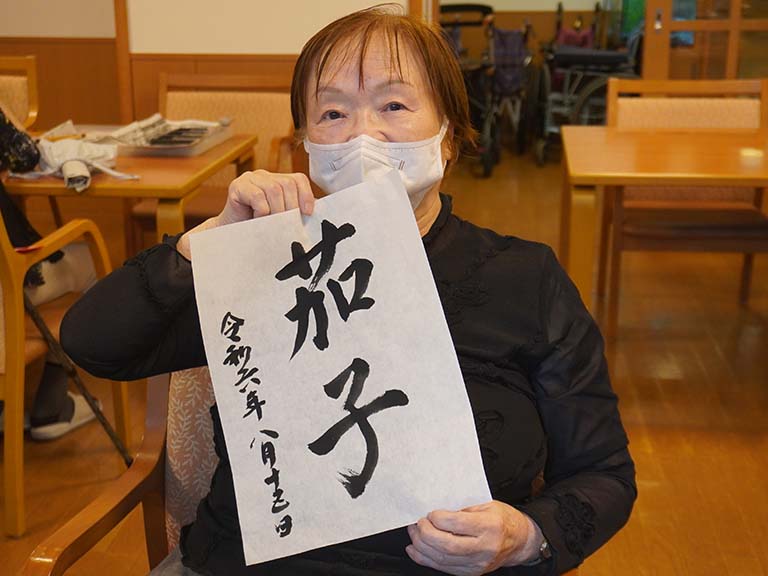 茄子
令和六年八月十五日